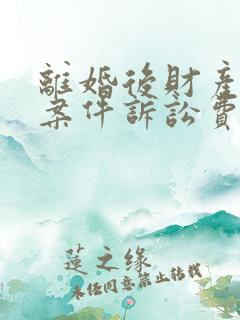 離婚後財產
案件訴訟費
蓮之缘
未任同意禁止转载